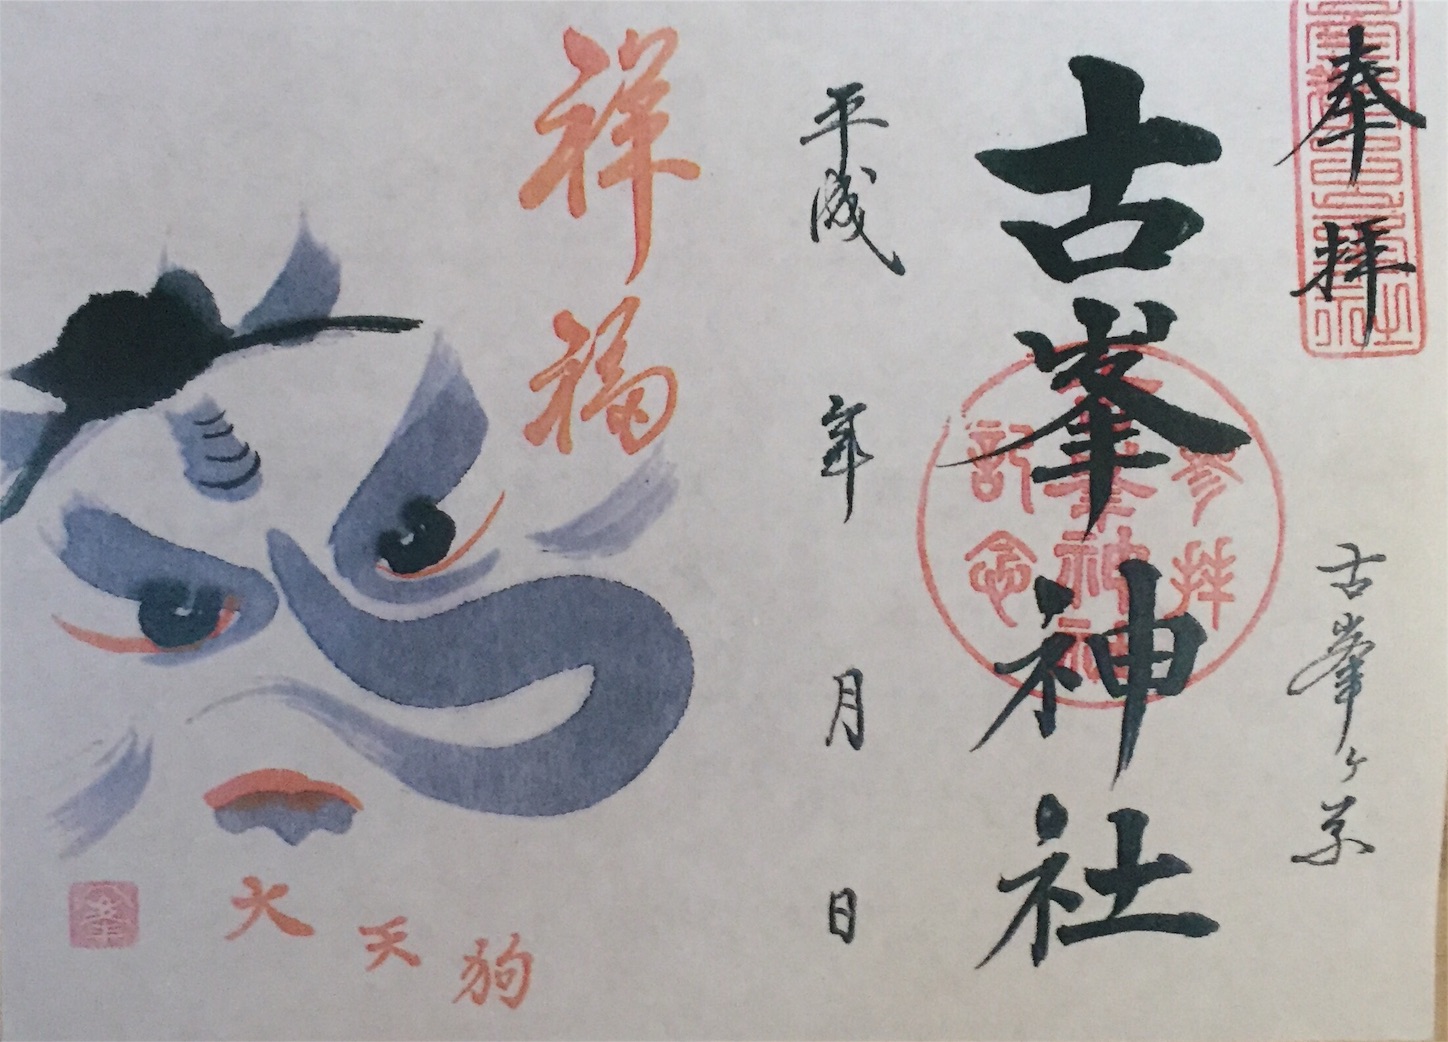 奉拝
古峯ヶ原
古峯神社
参拝
古峯神社
記念
平成 年 月 日
祥福
大天狗
峯